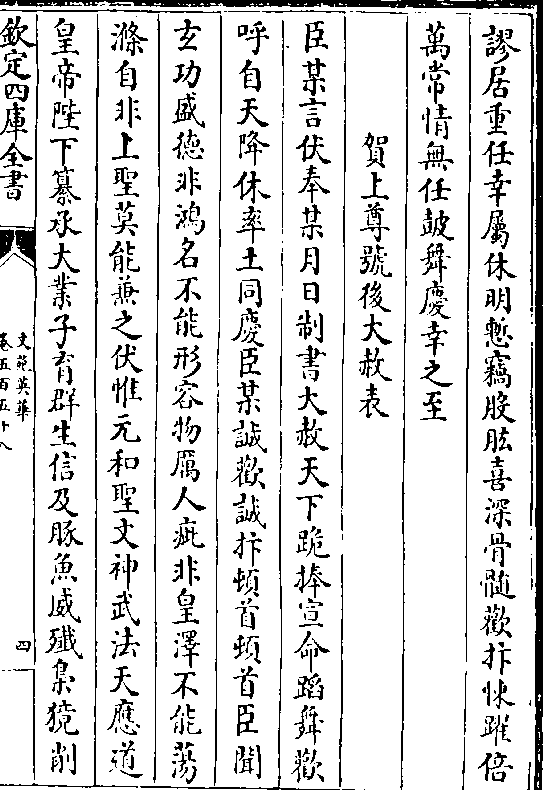 謬居重任幸屬休明慙竊股肱喜深骨髓歡抃悚躍倍
萬常情無任鼓舞慶幸之至
賀上尊號後大赦表
臣某言伏奉某月日制書大赦天下跪捧宣命蹈舞歡
呼自天降休率土同慶臣某誠歡誠抃頓首頓首臣聞
玄功盛德非鴻名不能形容物厲人疵非皇澤不能蕩
滌自非上聖莫能兼之伏惟元和聖文神武法天應道
皇帝陛下纂承大業子育群生信及豚魚威殱梟獍削
欽定四庫全書
文苑英華
卷五百五十八
四